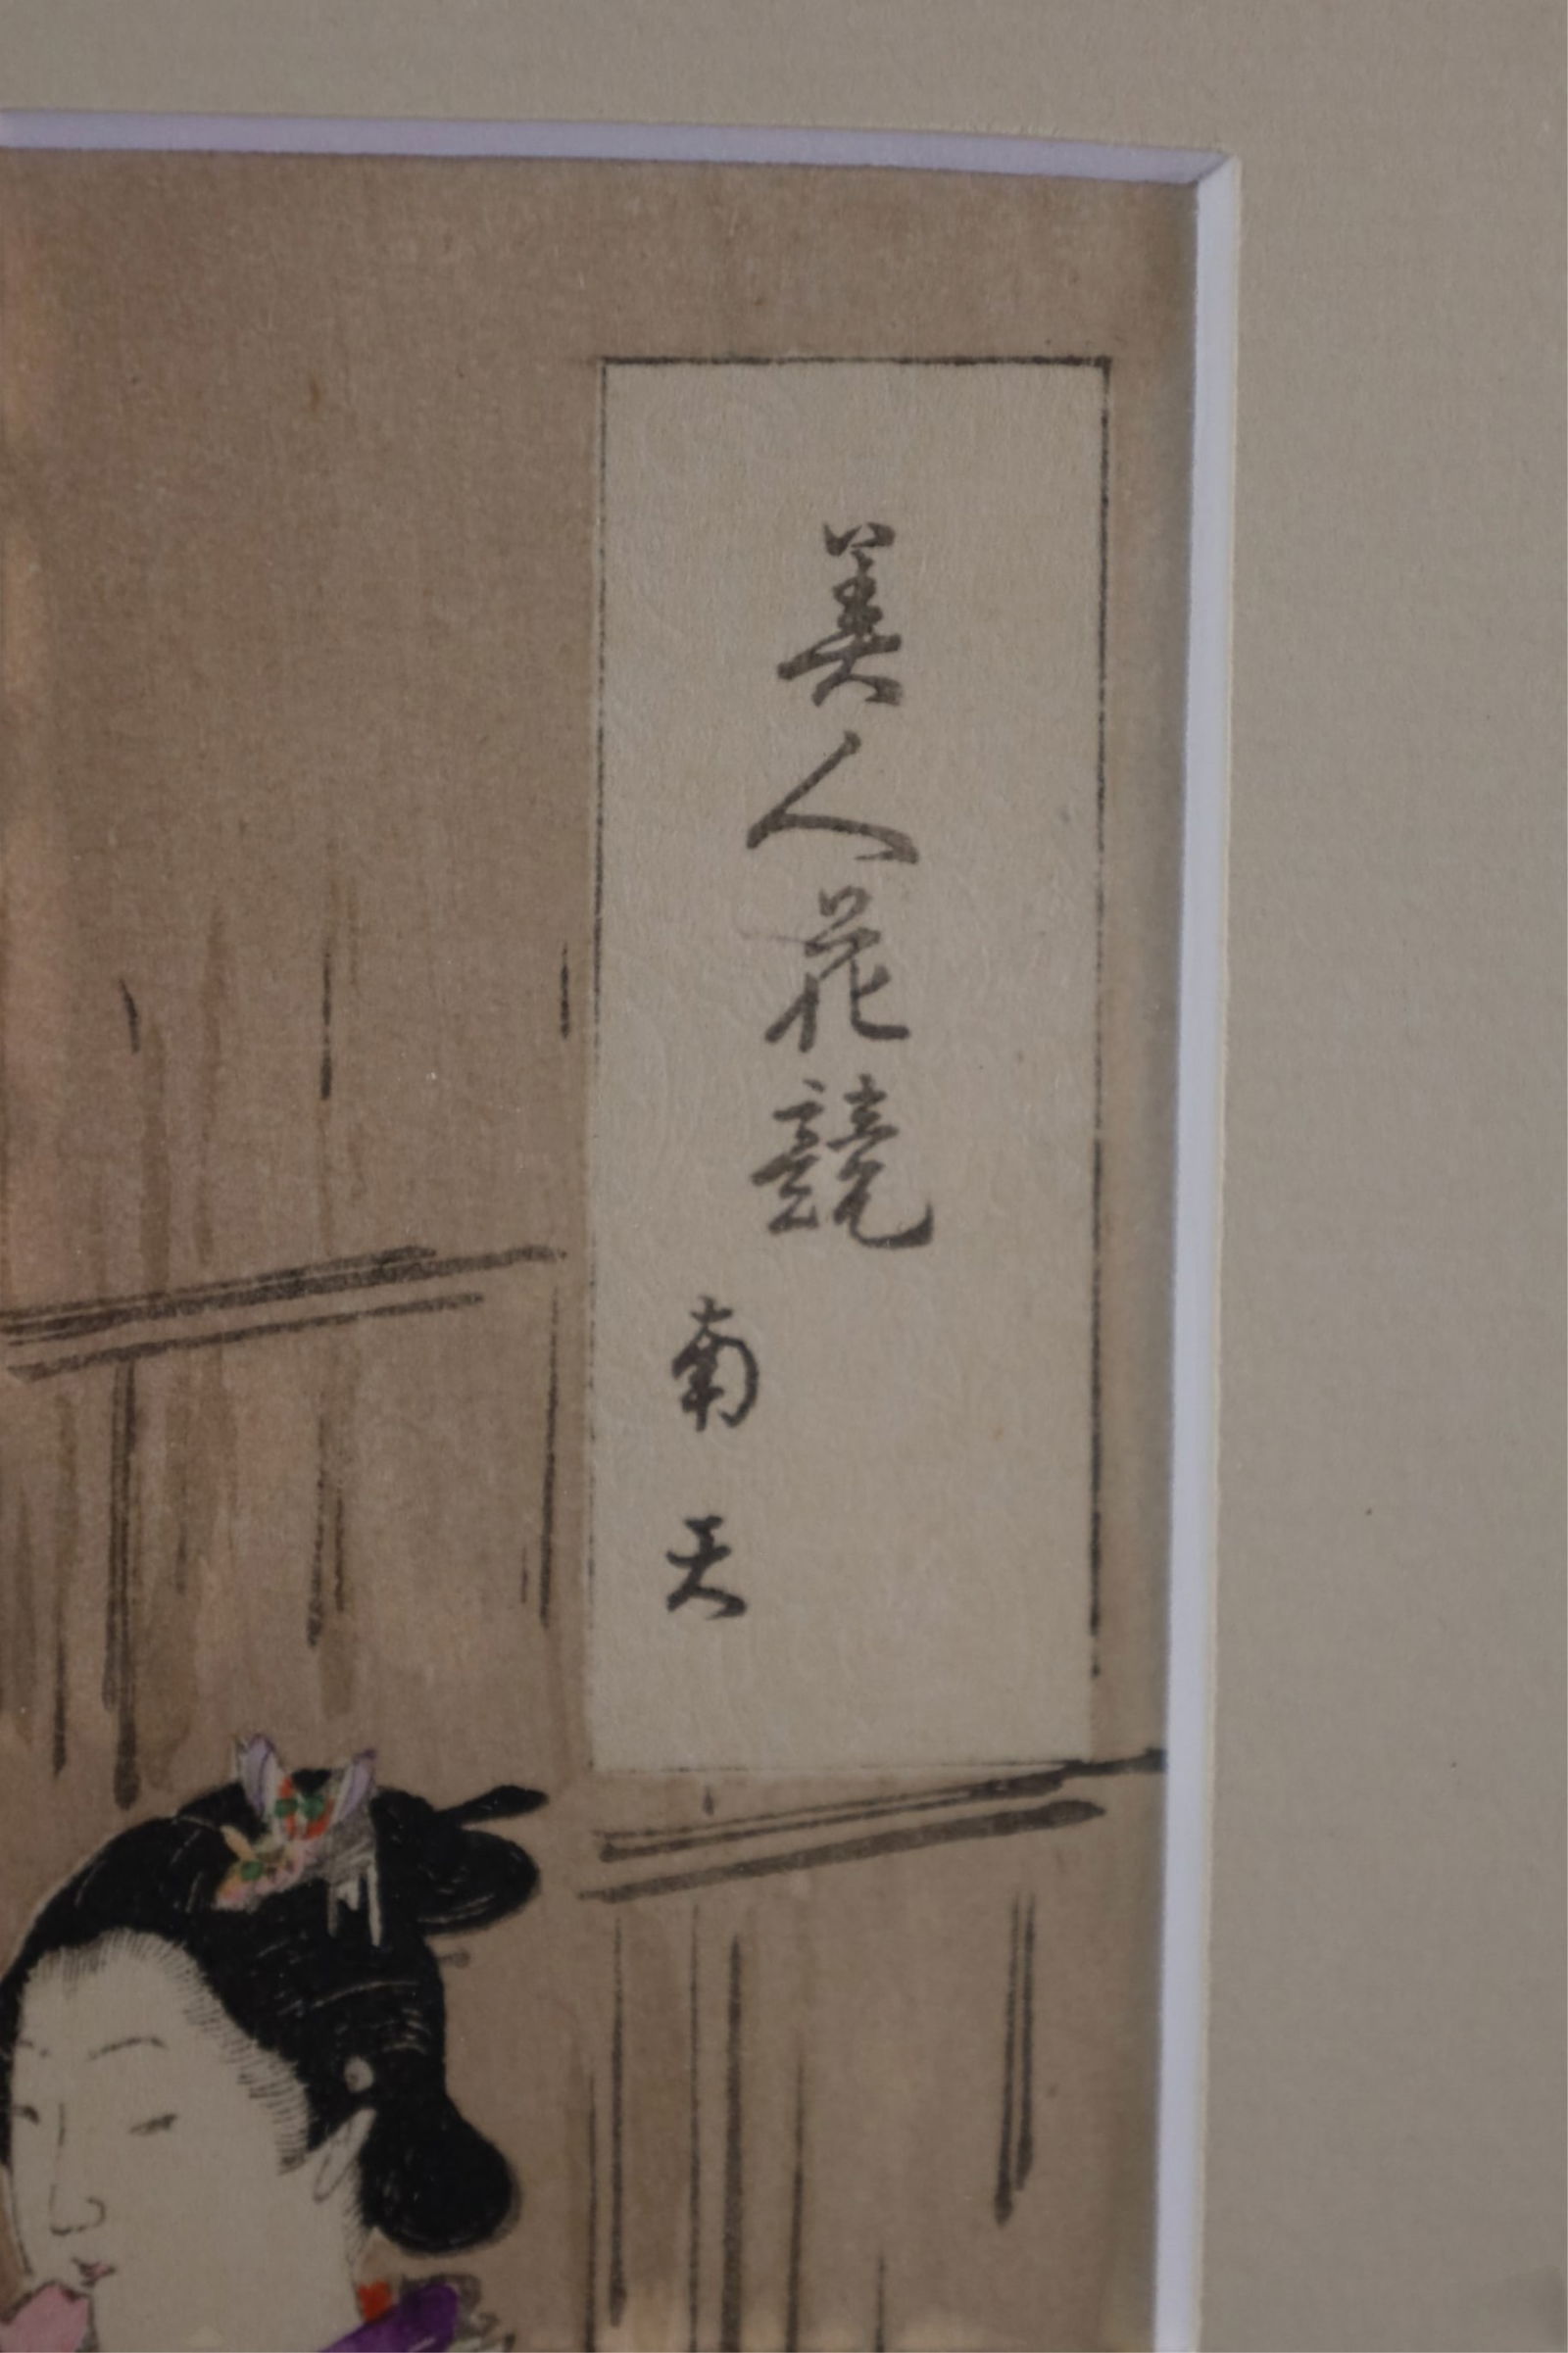 美人花競
南天